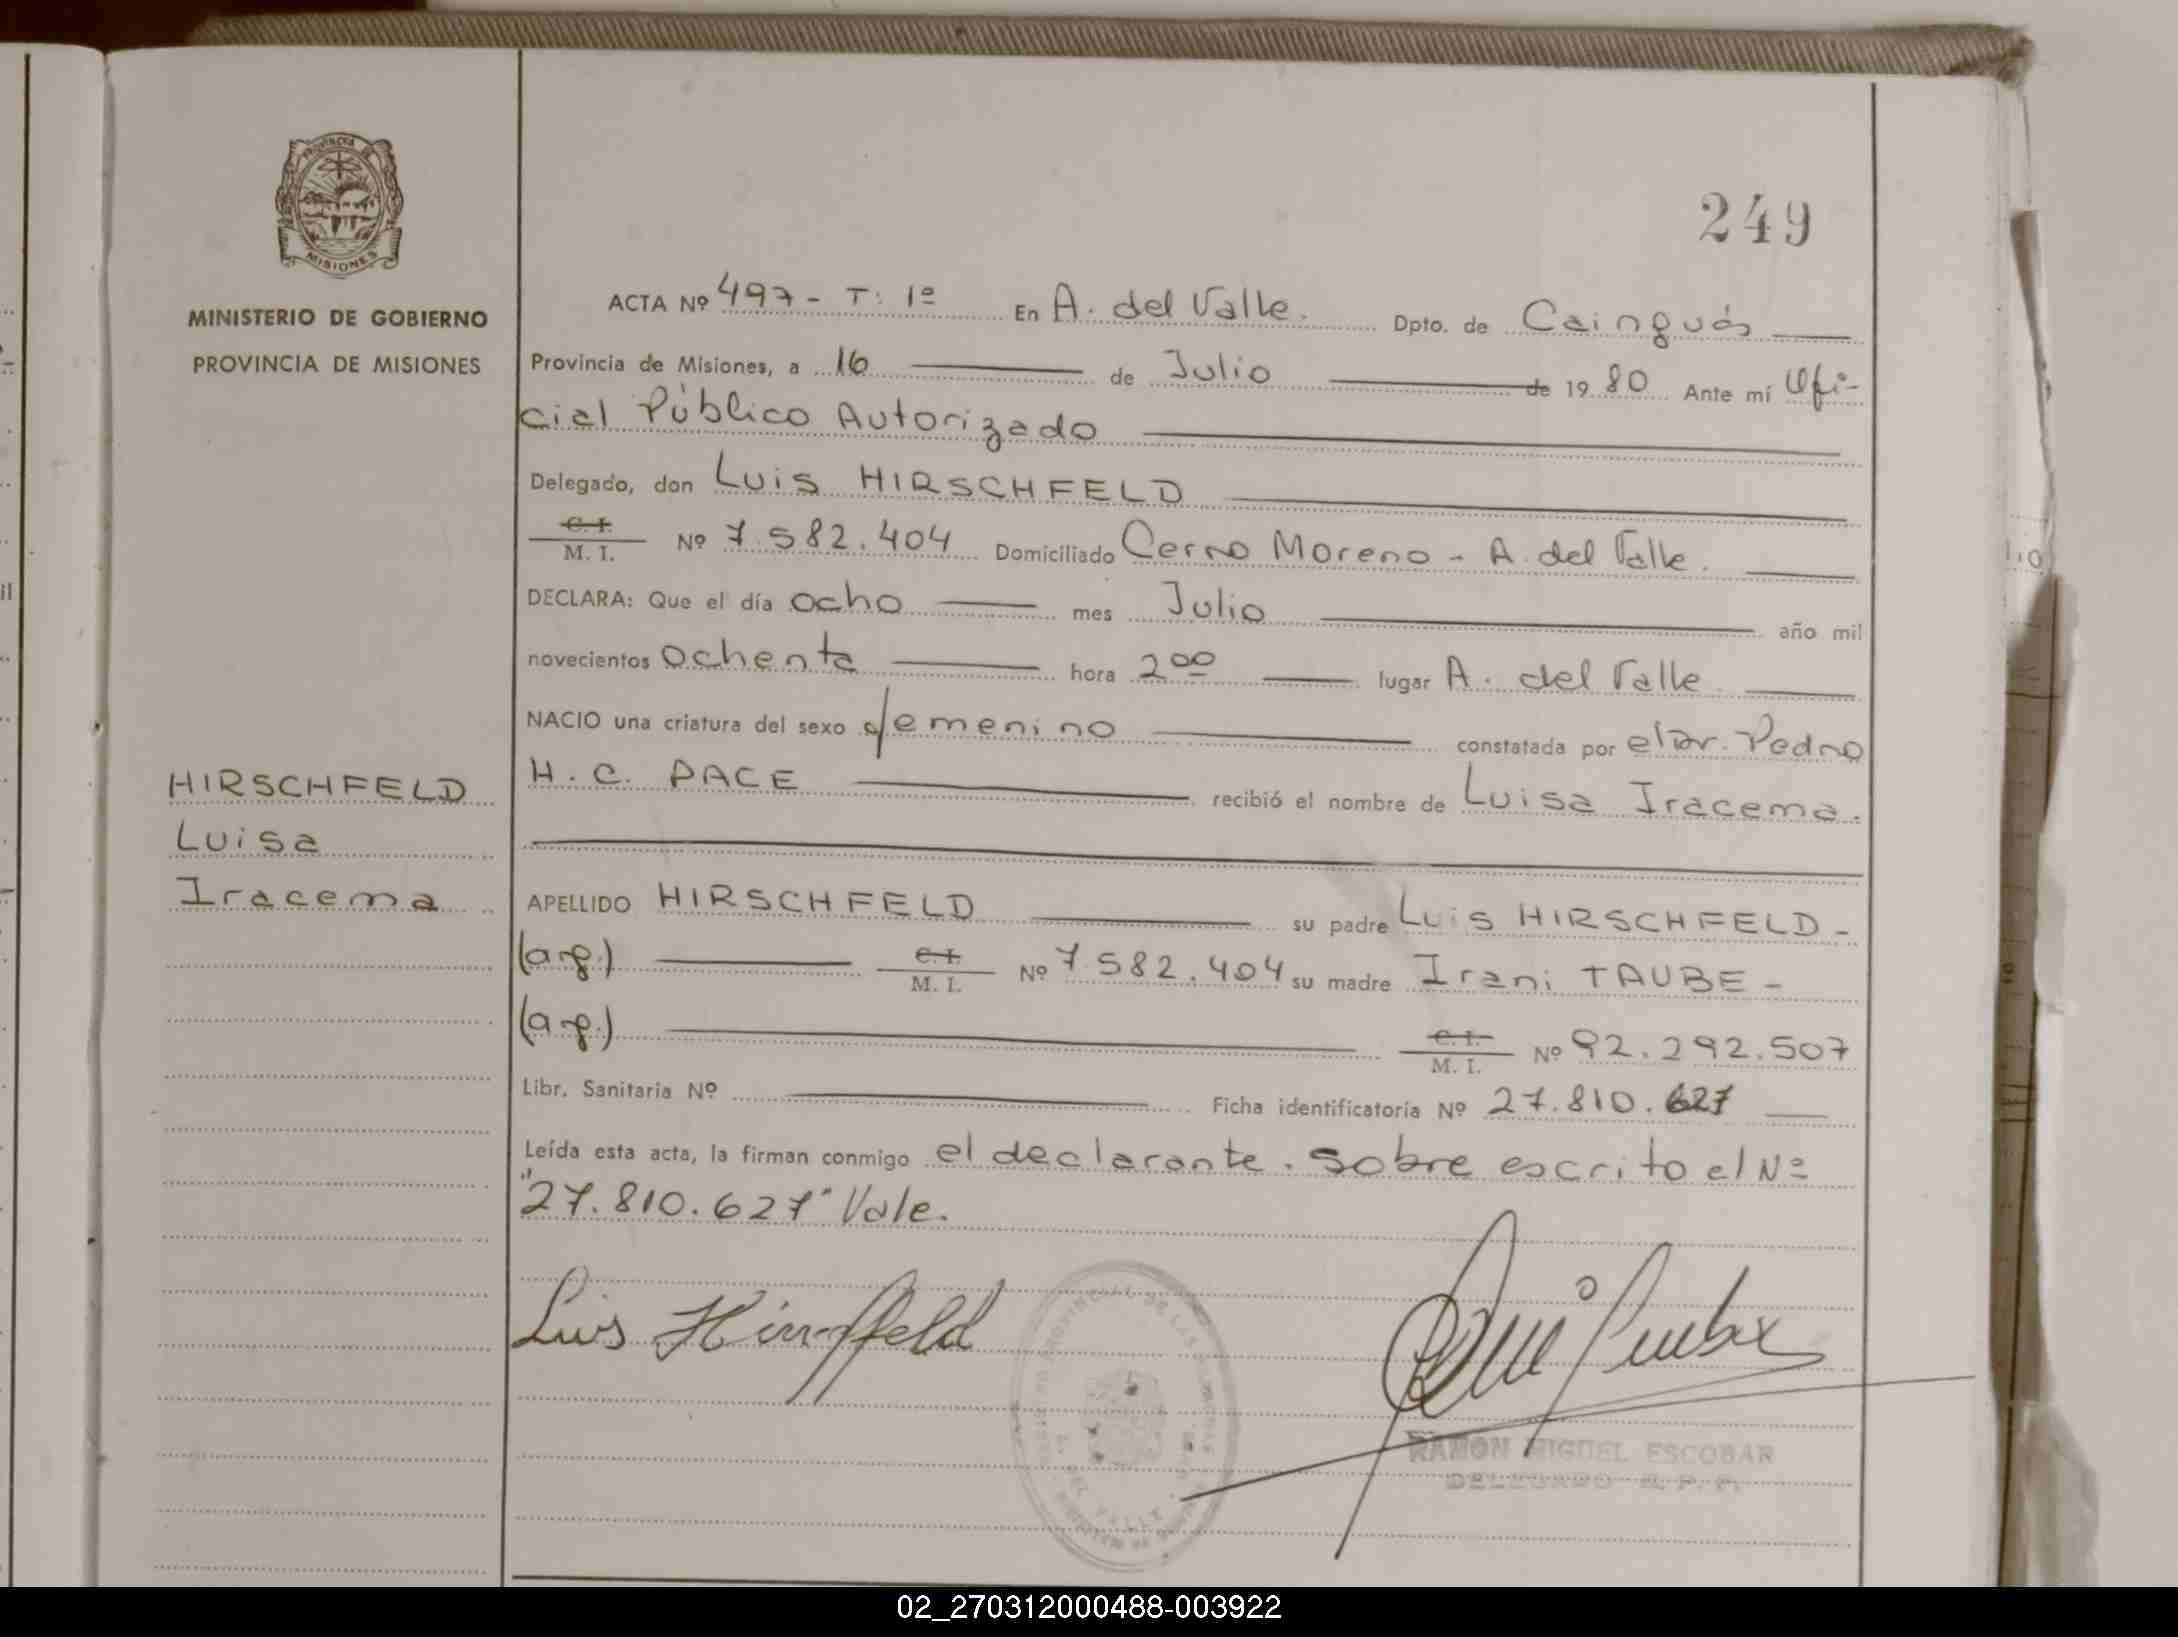 249
PROVINCIA DE
MISIONES
MINISTERIO DE GOBIERNO
PROVINCIA DE MISIONES
ACTA Nº 497 - T: 1º En A. del Valle. Dpto. de Cainguás
Provincia de Misiones, a 16 de Julio de 1980 Ante mí Ofi-
cial Público Autorizado
Delegado, don Luis HIRSCHFELD
C. I.
M. I. Nº 7.582.404 Domiciliado Cerro Moreno - A. del Valle.
DECLARA: Que el día ocho mes Julio año mil
novecientos ochenta hora 2 00 lugar A. del Valle
NACIO una criatura del sexo femenino constatada por el Dr. Pedro
H. C. PACE recibió el nombre de Luisa Iracema.
HIRSCHFELD
Luisa
Iracema
APELLIDO HIRSCHFELD su padre Luis HIRSCHFELD -
(arg.) C. I. M. I. Nº 7.582.404 su madre Irani TAUBE -
(arg.) C. I. M. I. Nº 92.292.507
Libr. Sanitaria Nº Ficha identificatoria Nº 27.810.627
Leída esta acta, la firman conmigo el declarante. Sobre escrito el Nº
"27.810.627" Vale.
Luis Hirschfeld
RAMON MIGUEL ESCOBAR
DELEGADO R. P. P.
02_270312000488-003922